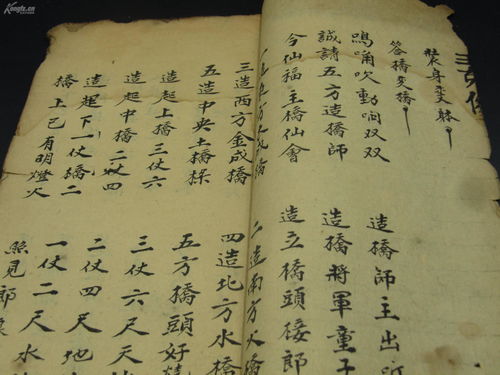 裝身変躰
答橋変橋
鳴角吹動响双双
造橋師主出
誠請五方造橋師
造橋將軍童子
今仙福主橋仙會
造立橋頭接郎
二造南方火橋
三造西方金成橋
四造北方水橋
五造中央土橋樑
五方橋頭好
造起上橋三仗六
三仗六尺天
造起中橋二仗四
二仗四尺地
造起下一仗橋二
一仗二尺水
橋上已有明燈火
照見郎
Kongfz.cn